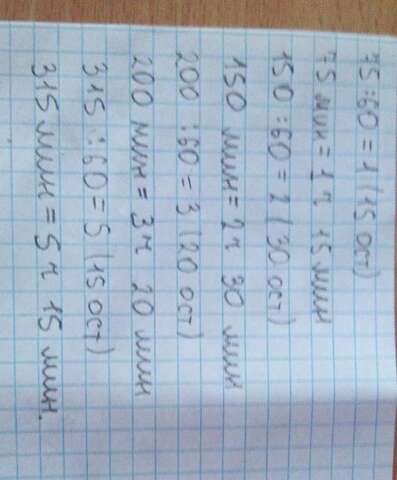 75:60=1(15 ост)
75 мин=1ч 15 мин
150:60=2(30 ост)
150 мин=2ч 30 мин
200:60=3(20 ост)
200 мин=3ч 20 мин
315:60=5(15 ост)
315 мин=5ч 15 мин.